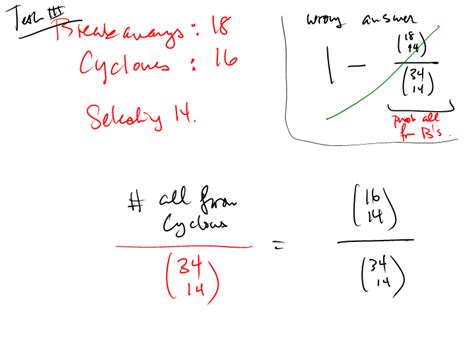 Test III
Breakaways: 18
Cyclones: 16
Selecting 14.
wrong answer
1 - \frac{\binom{18}{14}}{\binom{34}{14}}
prob all
from B's.
\frac{\text{# all from Cyclones}}{\binom{34}{14}} = \frac{\binom{16}{14}}{\binom{34}{14}}